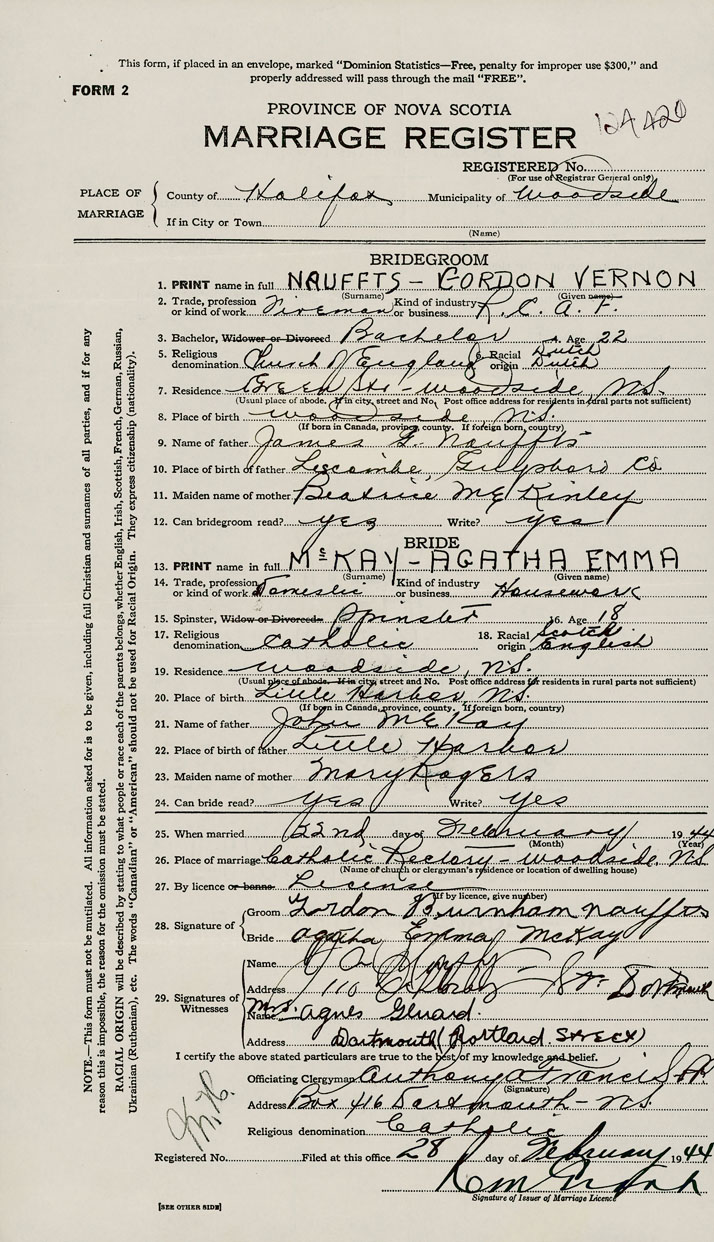 This form, if placed in an envelope, marked “Dominion Statistics—Free, penalty for improper use $300,” and
properly addressed will pass through the mail “FREE”.
FORM 2
PROVINCE OF NOVA SCOTIA
124420
MARRIAGE REGISTER
REGISTERED No.
(For use of Registrar General only)
PLACE OF MARRIAGE
County of Halifax Municipality of Woodside
If in City or Town
(Name)
BRIDEGROOM
1. PRINT name in full NAUFFTS - GORDON VERNON
(Surname) (Given name)
2. Trade, profession or kind of work Fireman Kind of industry or business R.C.A.F.
3. Bachelor, Widower or Divorced Bachelor 4. Age 22
5. Religious denomination Church of England 6. Racial origin Dutch Dutch
7. Residence Green St. - Woodside, NS.
(Usual place of abode. If in city, street and No. Post office address for residents in rural parts not sufficient)
8. Place of birth Woodside NS.
(If born in Canada, province, county. If foreign born, country)
9. Name of father James G. Nauffts
10. Place of birth of father Liscombe, Guysboro Co
11. Maiden name of mother Beatrice McKinley
12. Can bridegroom read? yes Write? yes
BRIDE
13. PRINT name in full McKAY - AGATHA EMMA
(Surname) (Given name)
14. Trade, profession or kind of work Domestic Kind of industry or business Housework
15. Spinster, Widow or Divorced Spinster 16. Age 18
17. Religious denomination Catholic 18. Racial origin Scotch English
19. Residence Woodside, NS.
(Usual place of abode. If in city, street and No. Post office address for residents in rural parts not sufficient)
20. Place of birth Little Harbor NS.
(If born in Canada, province, county. If foreign born, country)
21. Name of father John McKay
22. Place of birth of father Little Harbor
23. Maiden name of mother Mary Rogers
24. Can bride read? yes Write? yes
25. When married 22nd day of February 1944
(Month) (Year)
26. Place of marriage Catholic Rectory - Woodside, NS
(Name of church or clergyman's residence or location of dwelling house)
27. By licence or banns License
(If by licence, give number)
28. Signature of
Groom Gordon Burnham Nauffts
Bride Agatha Emma McKay
29. Signatures of Witnesses
Name
Address 110 St.
Name Mrs. Agnes
Address Dartmouth (Portland Street)
I certify the above stated particulars are true to the best of my knowledge and belief.
Officiating Clergyman Anthony A Francis
(Signature)
Address Box 416 Dartmouth - NS
Religious denomination Catholic
Registered No. Filed at this office 28 day of February 1944
Signature of Issuer of Marriage Licence
[SEE OTHER SIDE]
NOTE.—This form must not be mutilated. All information asked for is to be given, including full Christian and surnames of all parties, and if for any
reason this is impossible, the reason for the omission must be stated.
RACIAL ORIGIN will be described by stating to what people or race each of the parents belongs, whether English, Irish, Scottish, French, German, Russian,
Ukrainian (Ruthenian), etc. The words “Canadian” or “American” should not be used for Racial Origin. They express citizenship (nationality).